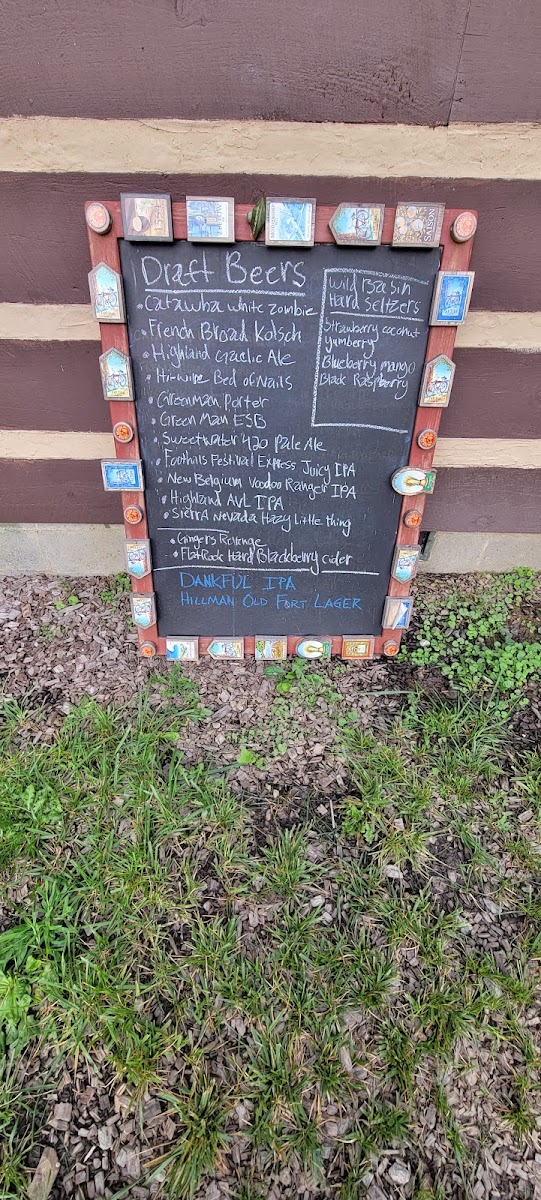 Draft Beers
• Catawba white zombie
• French Broad Kolsch
• Highland Gaelic Ale
• Hi-wire Bed of Nails
• Greenman Porter
• Green Man ESB
• Sweetwater 420 Pale Ale
• Foothills Festival Express Juicy IPA
• New Belgium Voodoo Ranger IPA
• Highland AVL IPA
• Sierra Nevada Hazy Little thing
• Gingers Revenge
• FlatRock Hard Blackberry cider
DANKFUL IPA
HILLMAN OLD FORT LAGER
Wild Basin
Hard Seltzers
Strawberry coconut
Yumberry
Blueberry mango
Black Raspberry
SAISON